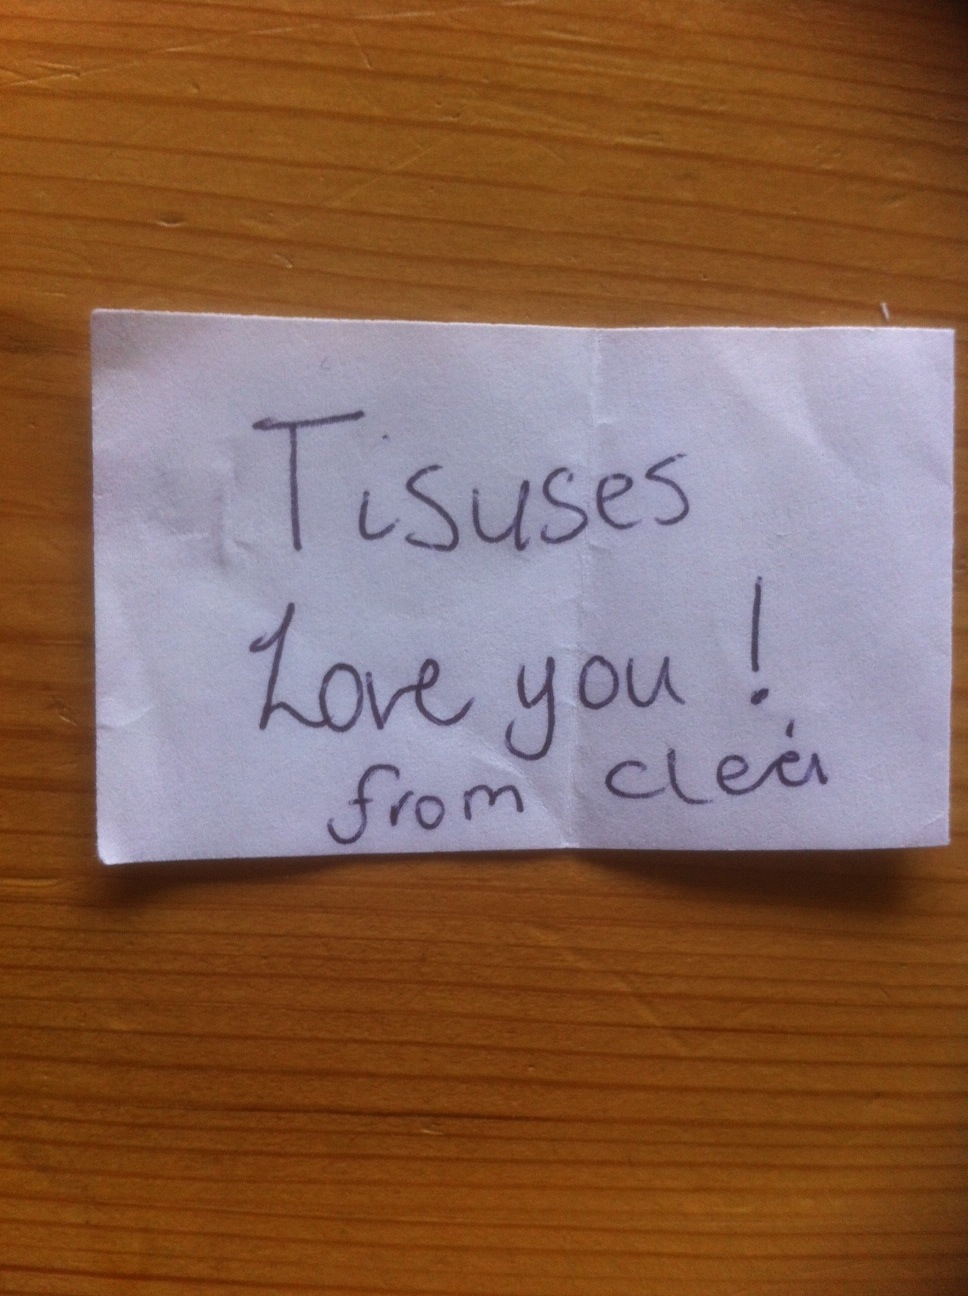 Tisuses
Love you!
from cleá